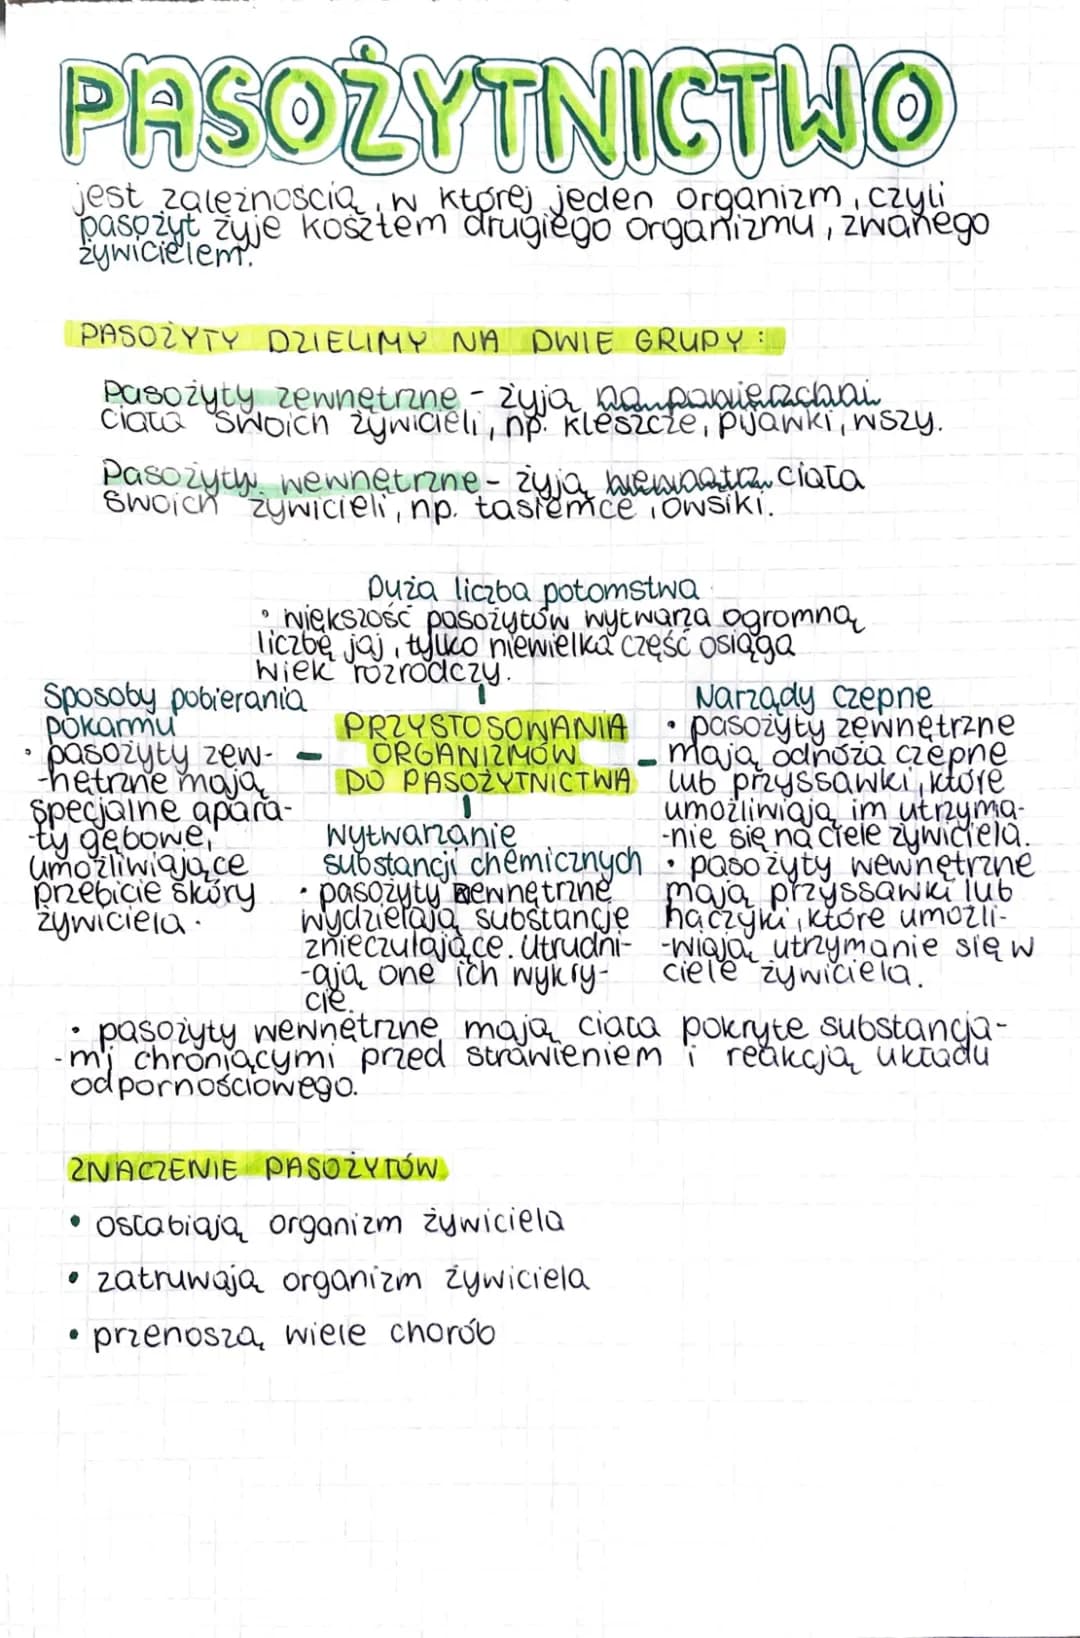 PASOŻYTNICTWO
jest zależnością, w której jeden organizm, czyli
pasożyt żyje kosztem drugiego organizmu, zwanego
żywicielem.
PASOŻYTY DZIELIMY NA DWIE GRUPY:
Pasożyty zewnętrzne - żyją na powierzchni
ciała swoich żywicieli, np. kleszcze, pijawki, wszy.
Pasożyty wewnętrzne - żyją wewnątrz ciała
swoich żywicieli, np. tasiemce, owsiki.
Duża liczba potomstwa
• większość pasożytów wytwarza ogromną
liczbę jaj, tylko niewielka część osiąga
wiek rozrodczy.
Sposoby pobierania
pokarmu
• pasożyty zew-
-nętrzne mają
specjalne apara-
-ty gębowe,
umożliwiające
przebicie skóry
żywiciela.
PRZYSTOSOWANIA
ORGANIZMÓW
DO PASOŻYTNICTWA
Narządy czepne
• pasożyty zewnętrzne
mają odnóża czepne
lub przyssawki, które
umożliwiają im utrzyma-
-nie się na ciele żywiciela.
• pasożyty wewnętrzne
mają przyssawki lub
haczyki, które umożli-
-wiają utrzymanie się w
ciele żywiciela.
Wytwarzanie
substancji chemicznych
• pasożyty zewnętrzne
wydzielają substancje
znieczulające. Utrudni-
-ają one ich wykry-
cie.
• pasożyty wewnętrzne mają ciała pokryte substancja-
-mi chroniącymi przed strawieniem i reakcją układu
odpornościowego.
ZNACZENIE PASOŻYTÓW
• osłabiają organizm żywiciela
• zatruwają organizm żywiciela
• przenoszą wiele chorób